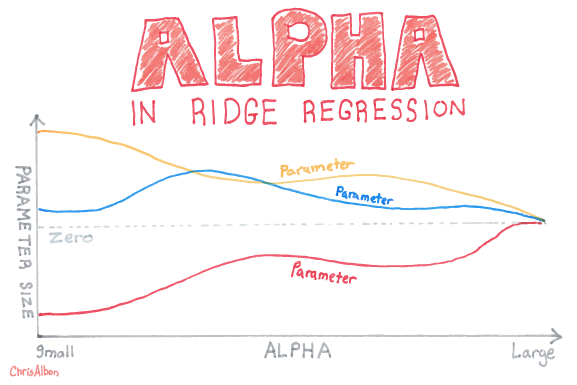 ALPHA
IN RIDGE REGRESSION
PARAMETER SIZE
Parameter
Parameter
Zero
Parameter
Small
ALPHA
Large
ChrisAlbon